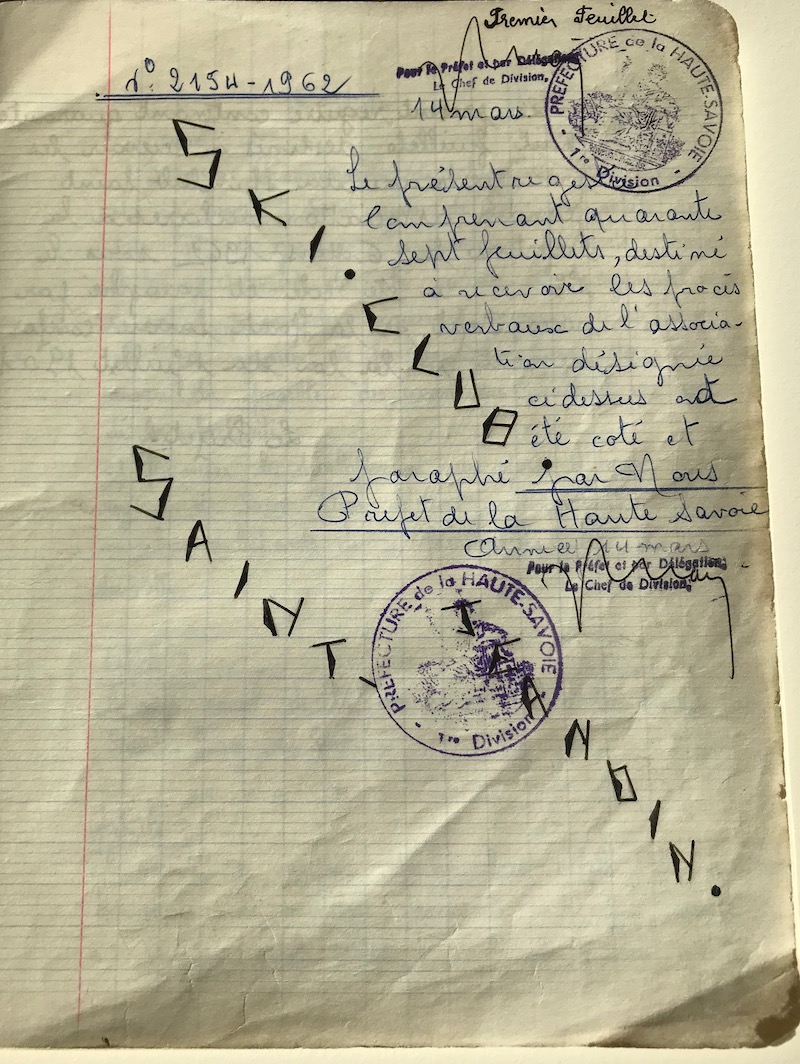 Premier Feuillet
Pour le Préfet et par Délégation,
Le Chef de Division,
PREFECTURE de la HAUTE-SAVOIE
- 1re Division -
N° 2154-1962
14 mars.
SKI. CLUB.
Le présent
Comprenant quarante
sept feuillets, destiné
à recevoir les procès
verbaux de l'associa-
tion désignée
ci dessus
été coté et
paraphé par Nous
Préfet de la Haute Savoie
14 mars
Pour le Préfet et par Délégation,
Le Chef de Division,
PREFECTURE de la HAUTE-SAVOIE
- 1re Division -
SAINT-JEANDIN.